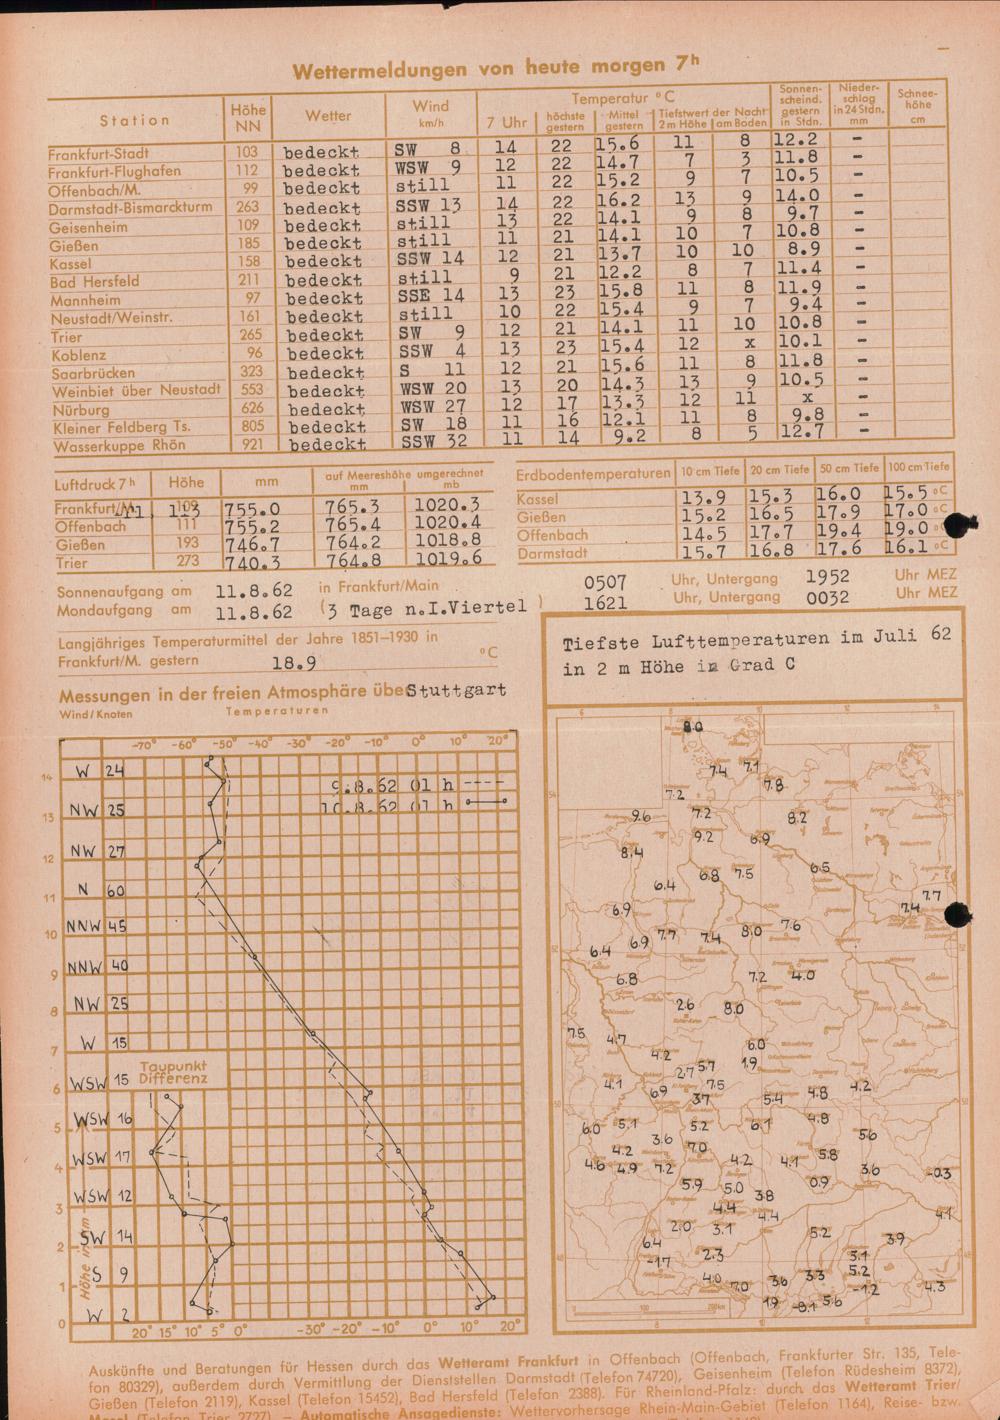 Wettermeldungen von heute morgen 7h
Station Höhe NN Wetter Wind km/h Temperatur °C 7 Uhr höchste gestern Mittel gestern Tiefstwert der Nacht 2 m Höhe am Boden Sonnen-scheind. gestern in Stdn. Nieder-schlag in 24 Stdn. mm Schnee-höhe cm
Frankfurt-Stadt 103 bedeckt SW 8 14 22 15.6 11 8 12.2 -
Frankfurt-Flughafen 112 bedeckt WSW 9 12 22 14.7 7 3 11.8 -
Offenbach/M. 99 bedeckt still 11 22 15.2 9 7 10.5 -
Darmstadt-Bismarckturm 263 bedeckt SSW 13 14 22 16.2 13 9 14.0 -
Geisenheim 109 bedeckt still 13 22 14.1 9 8 9.7 -
Gießen 185 bedeckt still 11 21 14.1 10 7 10.8 -
Kassel 158 bedeckt SSW 14 12 21 13.7 10 10 8.9 -
Bad Hersfeld 211 bedeckt still 9 21 12.2 8 7 11.4 -
Mannheim 97 bedeckt SSE 14 13 23 15.8 11 8 11.9 -
Neustadt/Weinstr. 161 bedeckt still 10 22 15.4 9 7 9.4 -
Trier 265 bedeckt SW 9 12 21 14.1 11 10 10.8 -
Koblenz 96 bedeckt SSW 4 13 23 15.4 12 x 10.1 -
Saarbrücken 323 bedeckt S 11 12 21 15.6 11 8 11.8 -
Weinbiet über Neustadt 553 bedeckt WSW 20 13 20 14.3 13 9 10.5 -
Nürburg 626 bedeckt WSW 27 12 17 13.3 12 11 x -
Kleiner Feldberg Ts. 805 bedeckt SW 18 11 16 12.1 11 8 9.8 -
Wasserkuppe Rhön 921 bedeckt SSW 32 11 14 9.2 8 5 12.7 -
Luftdruck 7h Höhe mm auf Meereshöhe umgerechnet mm mb
Frankfurt/M. 113 755.0 765.3 1020.3
Offenbach 111 755.2 765.4 1020.4
Gießen 193 746.7 764.2 1018.8
Trier 273 740.3 764.8 1019.6
Erdbodentemperaturen 10 cm Tiefe 20 cm Tiefe 50 cm Tiefe 100 cm Tiefe
Kassel 13.9 15.3 16.0 15.5 °C
Gießen 15.2 16.5 17.9 17.0 °C
Offenbach 14.5 17.7 19.4 19.0 °C
Darmstadt 15.7 16.8 17.6 16.1 °C
Sonnenaufgang am 11.8.62 in Frankfurt/Main 0507 Uhr, Untergang 1952 Uhr MEZ
Mondaufgang am 11.8.62 (3 Tage n.I.Viertel ) 1621 Uhr, Untergang 0032 Uhr MEZ
Langjähriges Temperaturmittel der Jahre 1851–1930 in
Frankfurt/M. gestern 18.9 °C
Messungen in der freien Atmosphäre über Stuttgart
Wind/Knoten Temperaturen
-70° -60° -50° -40° -30° -20° -10° 0° 10° 20°
9.8.62 01 h ----
10.8.62 01 h
14 W 24
13 NW 25
12 NW 27
11 N 60
10 NNW 45
9 NNW 40
8 NW 25
7 W 15
Taupunkt
Differenz
6 WSW 15
5 WSW 16
4 WSW 17
3 WSW 12
2 SW 14
1 S 9
0 W 2
Höhe in km
20° 15° 10° 5° 0° -30° -20° -10° 0° 10° 20°
Tiefste Lufttemperaturen im Juli 62
in 2 m Höhe in Grad C
6 8 10 12 14
8.0
7.4 7.1
7.8
7.2
9.6 7.2 8.2
9.2 6.9
8.4
6.8 7.5 6.5
6.4
7.7
6.9 7.4
7.6
6.9 7.7 7.4 8.0
6.4
6.8 7.2 4.0
2.6 8.0
7.5 4.7
4.2 6.0
2.7 5.7 1.9
4.1 6.9 7.5
3.7 5.4 4.8 4.2
6.0 5.1 5.2 6.1 4.8
3.6 5.6
4.2 7.0
4.6 4.9 7.2 4.2 4.1 5.8
3.6 -0.3
5.9 5.0 0.9
3.8
4.4 4.4 4.1
2.0 3.1 5.2
6.4 3.9
-1.7 2.3 5.1
5.2
4.0 7.0 3.6 3.3
-1.2 4.3
1.9 -3.1 5.6
Auskünfte und Beratungen für Hessen durch das Wetteramt Frankfurt in Offenbach (Offenbach, Frankfurter Str. 135, Tele-
fon 80329), außerdem durch Vermittlung der Dienststellen Darmstadt (Telefon 74720), Geisenheim (Telefon Rüdesheim 8372),
Gießen (Telefon 2119), Kassel (Telefon 15452), Bad Hersfeld (Telefon 2388). Für Rheinland-Pfalz: durch das Wetteramt Trier/
Mosel (Telefon Trier 2727). – Automatische Ansagedienste: Wettervorhersage Rhein-Main-Gebiet (Telefon 1164), Reise- bzw.